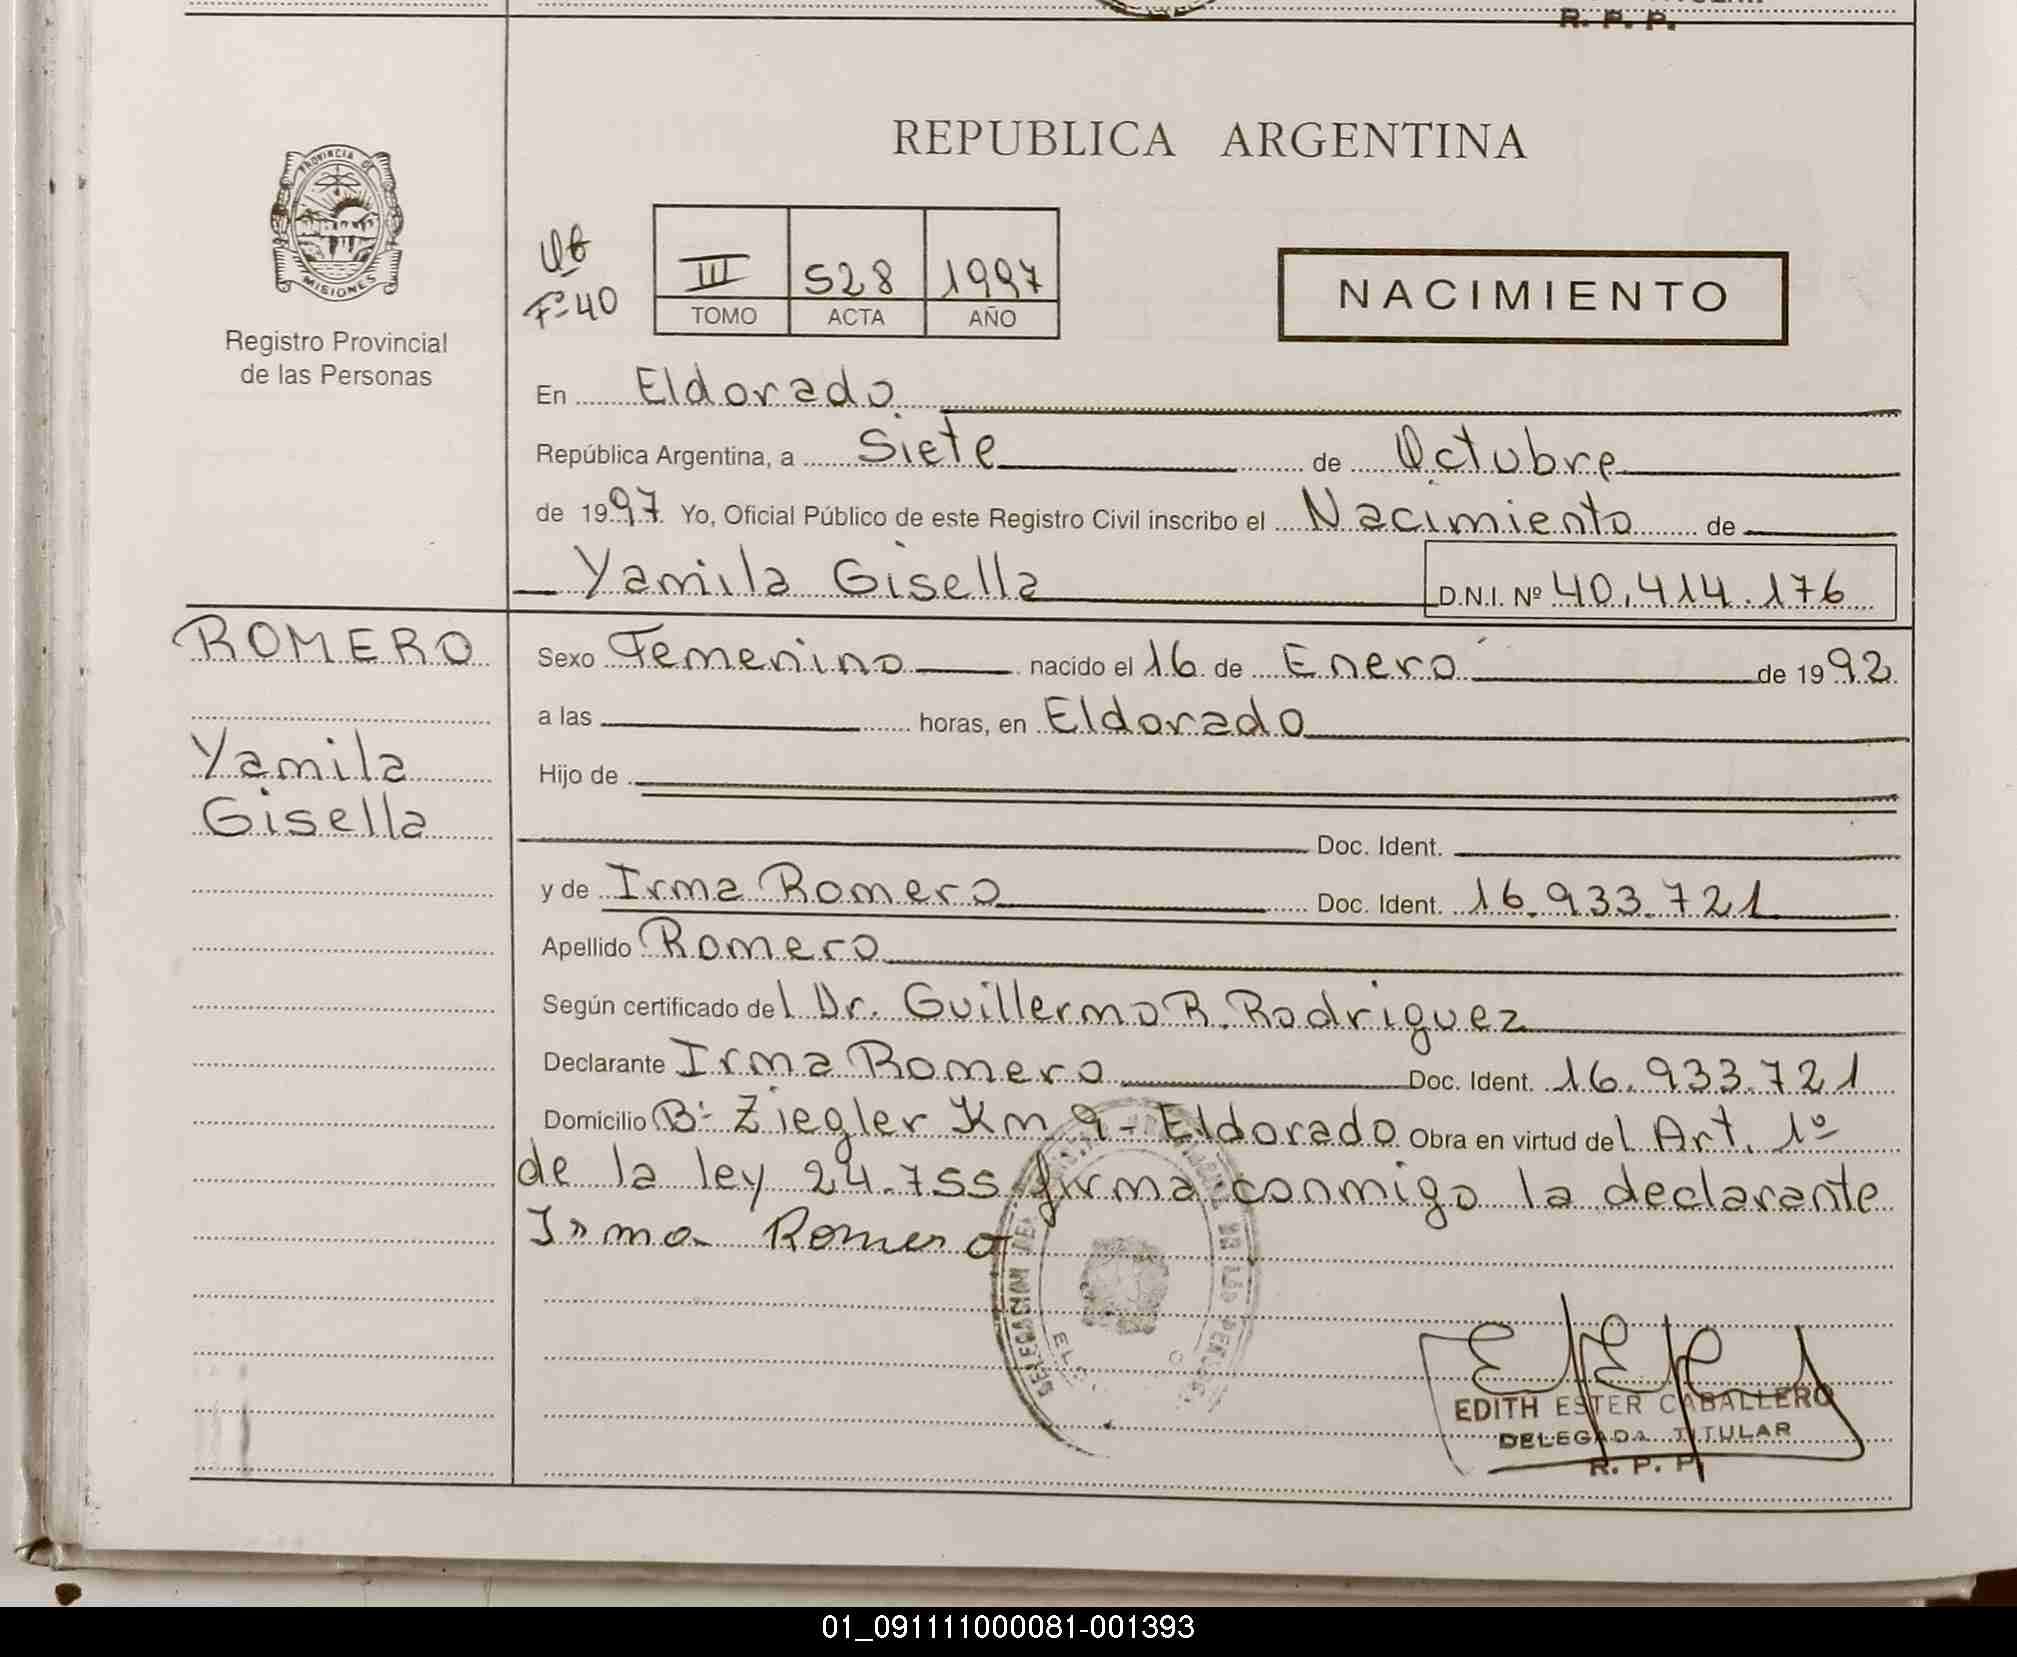 R. P. P.
PROVINCIA DE
MISIONES
Registro Provincial
de las Personas
REPUBLICA ARGENTINA
F=40
III 528 1997
TOMO ACTA AÑO
NACIMIENTO
En Eldorado
República Argentina, a Siete de Octubre
de 1997 Yo, Oficial Público de este Registro Civil inscribo el Nacimiento de
Yamila Gisella D.N.I. Nº 40.414.176
ROMERO
Yamila
Gisella
Sexo Femenino nacido el 16 de Enero de 1992
a las horas, en Eldorado
Hijo de
Doc. Ident.
y de Irma Romero Doc. Ident. 16.933.721
Apellido Romero
Según certificado del Dr. Guillermo R. Rodriguez
Declarante Irma Romero Doc. Ident. 16.933.721
Domicilio Bº Ziegler Km 9 - Eldorado Obra en virtud del Art. 1º
de la ley 24.755 firma conmigo la declarante
Irma Romero
DELEGACION DE LAS
EDITH ESTER CABALLERO
DELEGADA TITULAR
R. P. P.
01_091111000081-001393